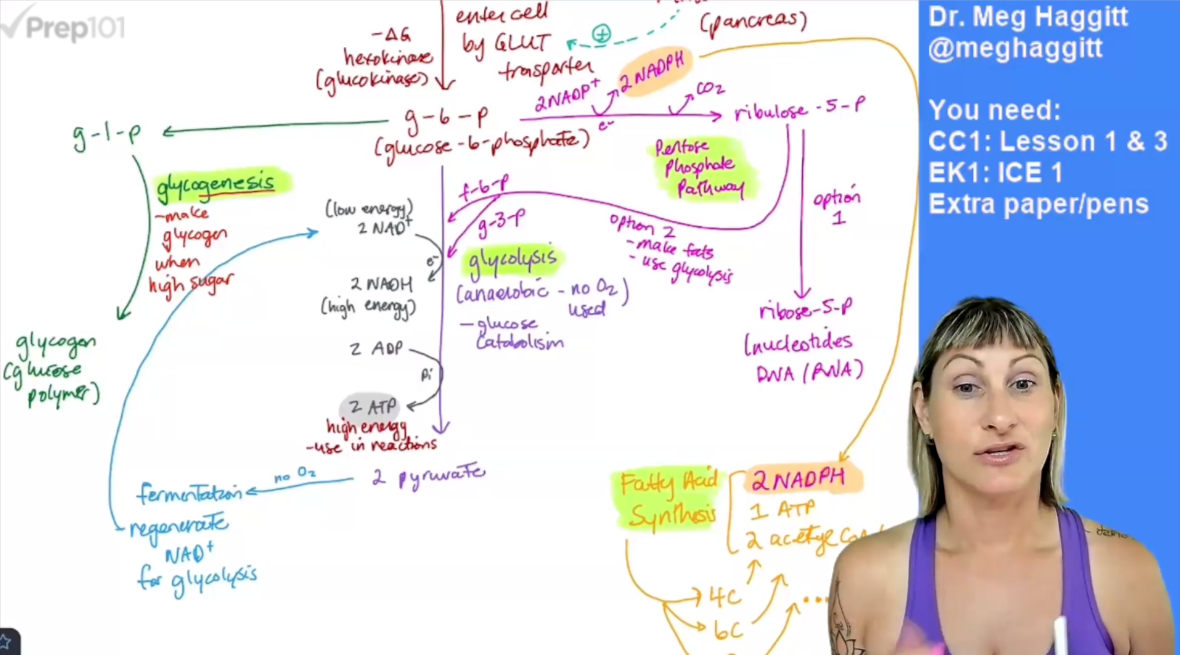 Prep101
-ΔG
hexokinase
(glucokinase)
enter cell
by GLUT
trasporter
+
(pancreas)
g-1-p
g-6-p
(glucose-6-phosphate)
2NADP+
2NADPH
e-
CO2
ribulose-5-P
Pentose
Phosphate
Pathway
glycogenesis
-make
glycogen
when
high sugar
glycogen
(glucose
polymer)
(low energy)
2 NAD+
e-
2 NADH
(high energy)
2 ADP
Pi
2 ATP
high energy
-use in reactions
f-6-p
g-3-p
glycolysis
(anaerobic - no O2
used)
- glucose
catabolism
option 2
- make fats
- use glycolysis
option
1
ribose-5-P
(nucleotides
DNA/RNA)
2 pyruvate
no O2
fermentation
regenerate
NAD+
for glycolysis
Fatty Acid
Synthesis
2 NADPH
1 ATP
2 acetyl
4C
6C
...
Dr. Meg Haggitt
@meghaggitt
You need:
CC1: Lesson 1 & 3
EK1: ICE 1
Extra paper/pens